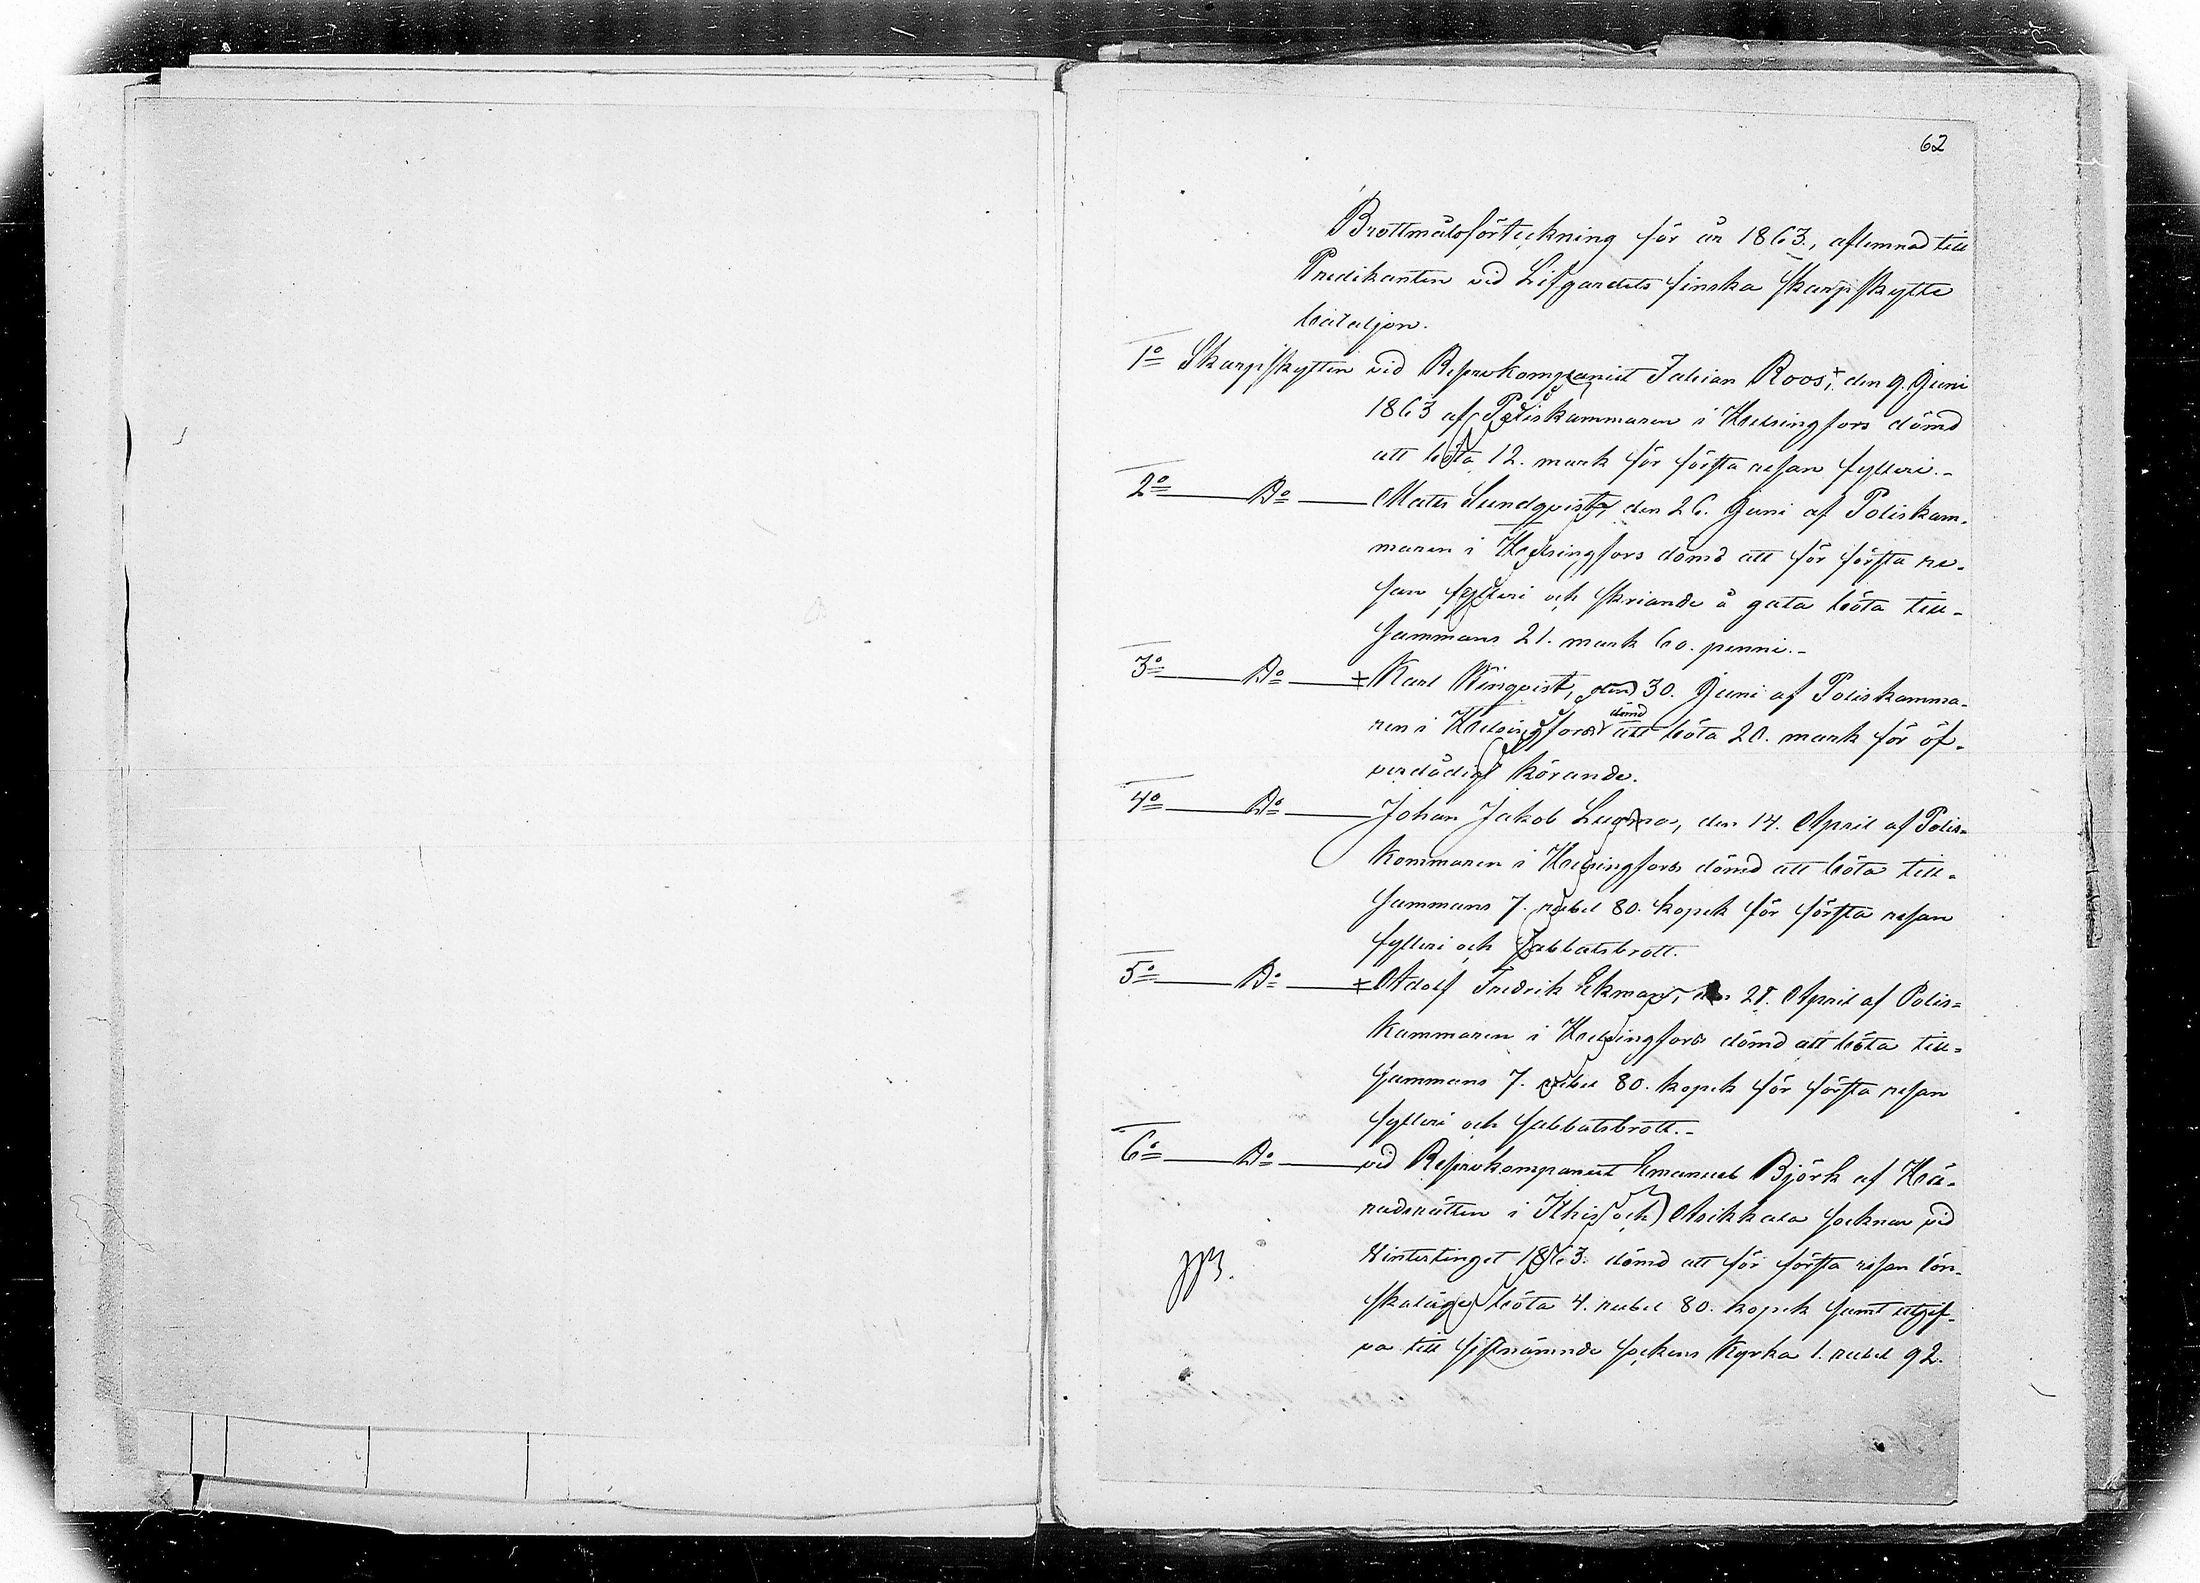 62
Brottmålsförteckning för år 1863., aflemnad till
Predikanten vid Lifgardets finska Skarpskytte
bataljon.
1º Skarpskytten vid Reservkompaniet Fabian Roos, den 9. Juni
1863 af Poliskammaren i Helsingfors dömd
att böta 12. mark för första resan fylleri.-
2º Dº Mats Lundqvist, den 26. Juni af Poliskam-
maren i Helsingfors dömd att för första re-
san fylleri och skriande å gata böta till-
sammans 21. mark 60. penni.-
3º Dº + Karl Ringvist, den 30. Juni af Poliskamma-
ren i Helsingfors dömd att böta 20. mark för öf-
verdådigt körande.
4º Dº Johan Jakob, den 14. April af Polis=
kammaren i Helsingfors dömd att böta till-
sammans 7. rubel 80. kopek för första resan
fylleri och sabbatsbrott.
5º Dº + Adolf Fredrik Ekman, den 28. April af Polis=
kammaren i Helsingfors dömd att böta till=
sammans 7. rubel 80. kopek för första resan
fylleri och sabbatsbrott.-
6º Dº vid Reservkompaniet Emanuel Björk af Hä-
radsrätten i och Asikkala socknar vid
Vintertinget 1863. dömd att för första resan lön-
skaläge böta 4. rubel 80. kopek samt utgif-
va till sistnämnde sockens Kyrka 1. rubel 92.